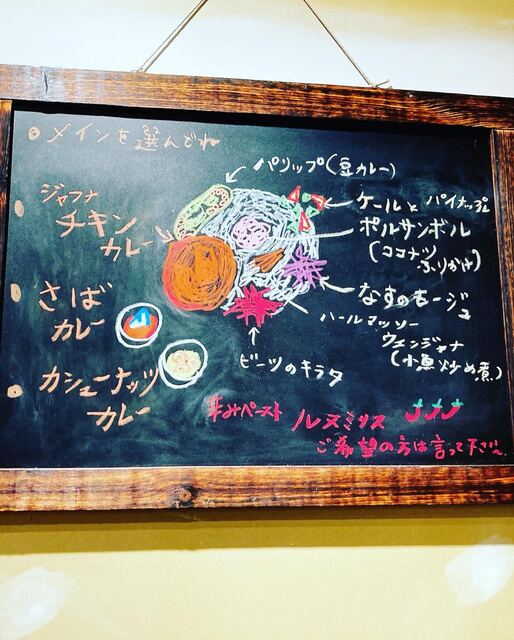 メインを選んでね
ジャフナ
チキン
カレー
さば
カレー
カシューナッツ
カレー
パリップ(豆カレー)
ケールとパイナップル
ポルサンボル
(ココナツ
ふりかけ)
なすのモージュ
ハールマッソー
ウェンジャナ
(小魚炒め煮)
ビーツのキラタ
辛みペースト ルヌミリス
ご希望の方は言って下さい